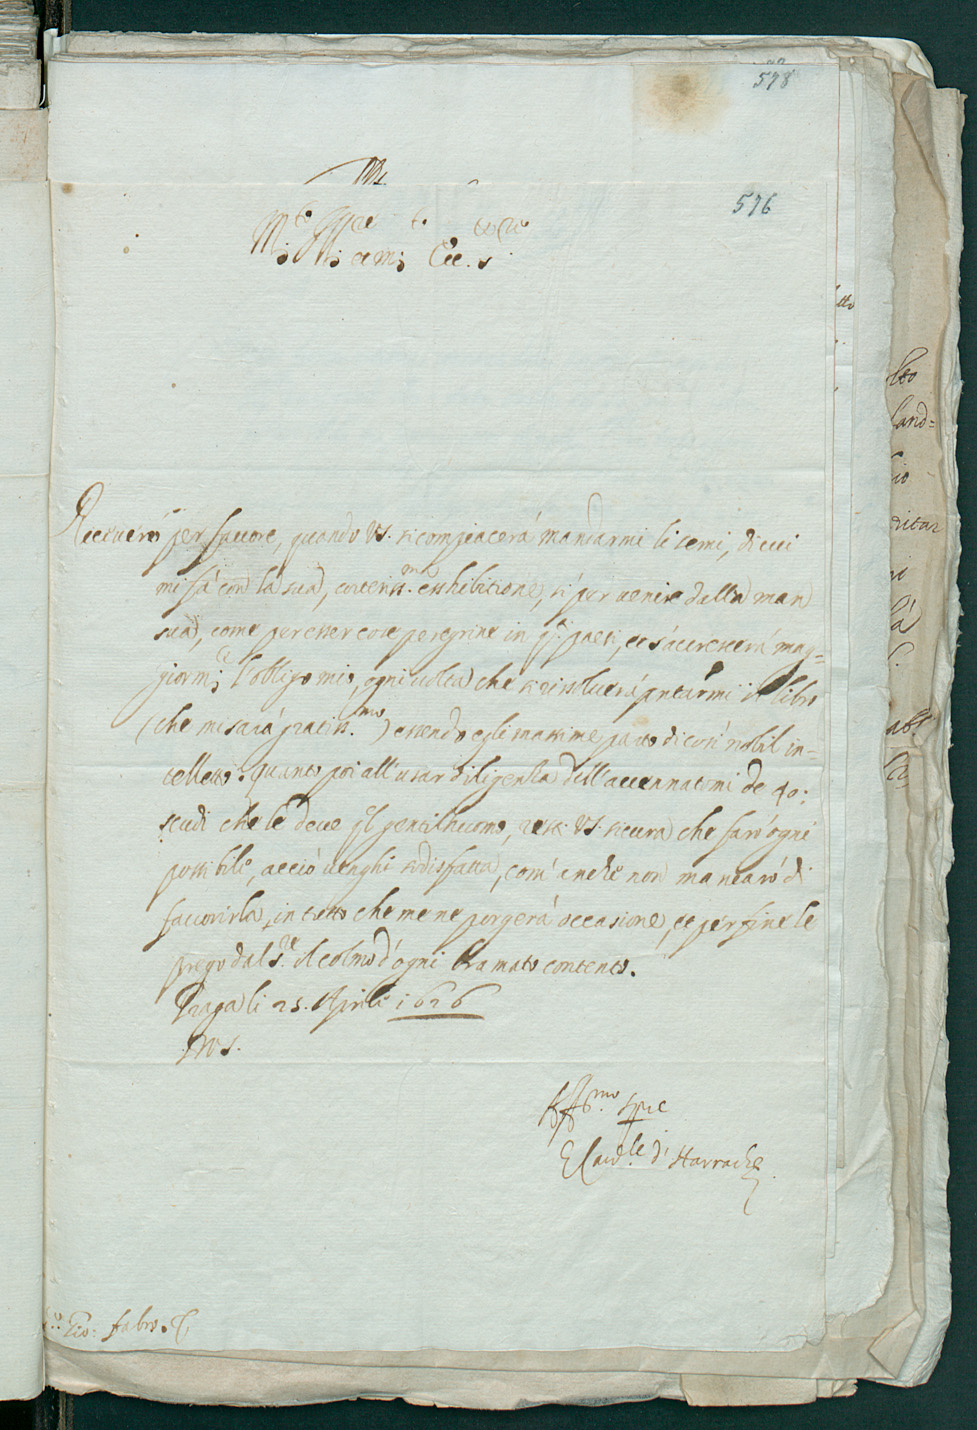 578
576
Riceverò per favore, quando VS. si compiacerà mandarmi li semi, di cui
mi fà con la sua, cortesis.ma exhibitione, sì per venire dalla man
sua, come per esser cose peregrine in q.i paesi, et s'accrescerà mag=
giorm.te l'obligo mio, ogni volta che si risolverà il libro
(che mi sarà gratiss.mo) essendo egli massime parto di così nobil in=
telletto. Quanto poi all'usar diligenza dell'accennatomi de 40:
scudi che le deve q.l gentilhuomo, resti VS. sicura che farò ogni
possibile, acciò venghi sodisfatta, com'anche non mancarò di
favorirla, in tutto che me ne porgerà occasione, et per fine le
prego dal S.re il colmo d'ogni bramato contento.
Praga li 25. Aprile 1626
Aff.mo
Il Card.le d'Harrach
Gio: Fabro.